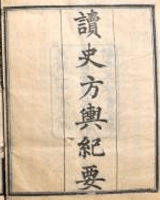 讀史方輿紀要